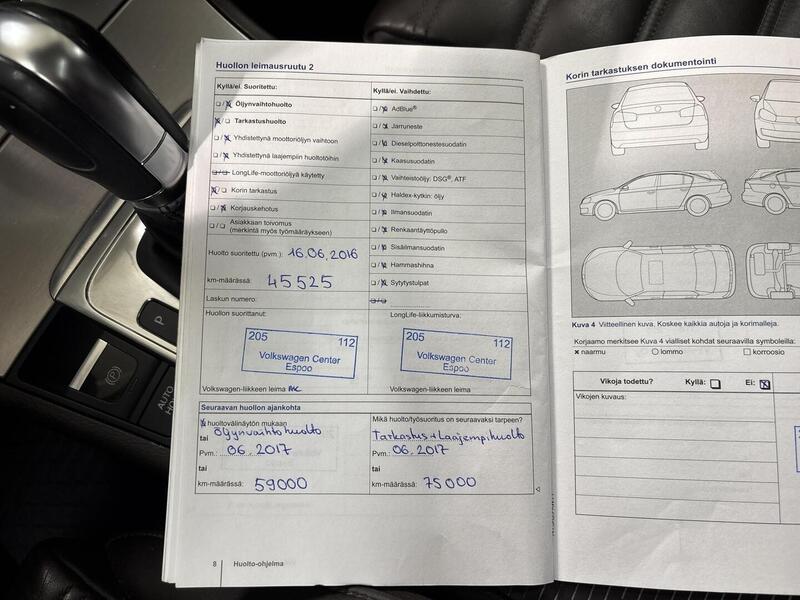 Huollon leimausruutu 2
Kyllä/ei. Suoritettu:
Öljynvaihtohuolto
Tarkastushuolto
Yhdistettynä moottoriöljyn vaihtoon
Yhdistettynä laajempiin huoltotöihin
LongLife-moottoriöljyä käytetty
Korin tarkastus
Korjauskehotus
Asiakkaan toivomus
(merkintä myös työmääräykseen)
Huolto suoritettu (pvm.): 16.06.2016
km-määrässä: 45525
Laskun numero:
Kyllä/ei. Vaihdettu:
AdBlue®
Jarruneste
Dieselpolttonestesuodatin
Kaasusuodatin
Vaihteistoöljy: DSG®, ATF
Haldex-kytkin: öljy
Ilmansuodatin
Renkaantäyttöpullo
Sisäilmansuodatin
Hammashihna
Sytytystulpat
Huollon suorittanut:
205 112
Volkswagen Center
Espoo
Volkswagen-liikkeen leima
LongLife-liikkumisturva:
205 112
Volkswagen Center
Espoo
Volkswagen-liikkeen leima
Seuraavan huollon ajankohta
huoltovälinäytön mukaan
tai Öljynvaihtohuolto
Pvm.: 06.2017
tai
km-määrässä: 59000
Mikä huolto/työsuoritus on seuraavaksi tarpeen?
Tarkastus+Laajempi huolto
Pvm.: 06.2017
tai
km-määrässä: 75000
8 Huolto-ohjelma
Korin tarkastuksen dokumentointi
Kuva 4 Viitteellinen kuva. Koskee kaikkia autoja ja korimalleja.
Korjaamo merkitsee Kuva 4 vialliset kohdat seuraavilla symboleilla:
naarmu lommo korroosio
Vikoja todettu? Kyllä: Ei:
Vikojen kuvaus:
P
AUTO